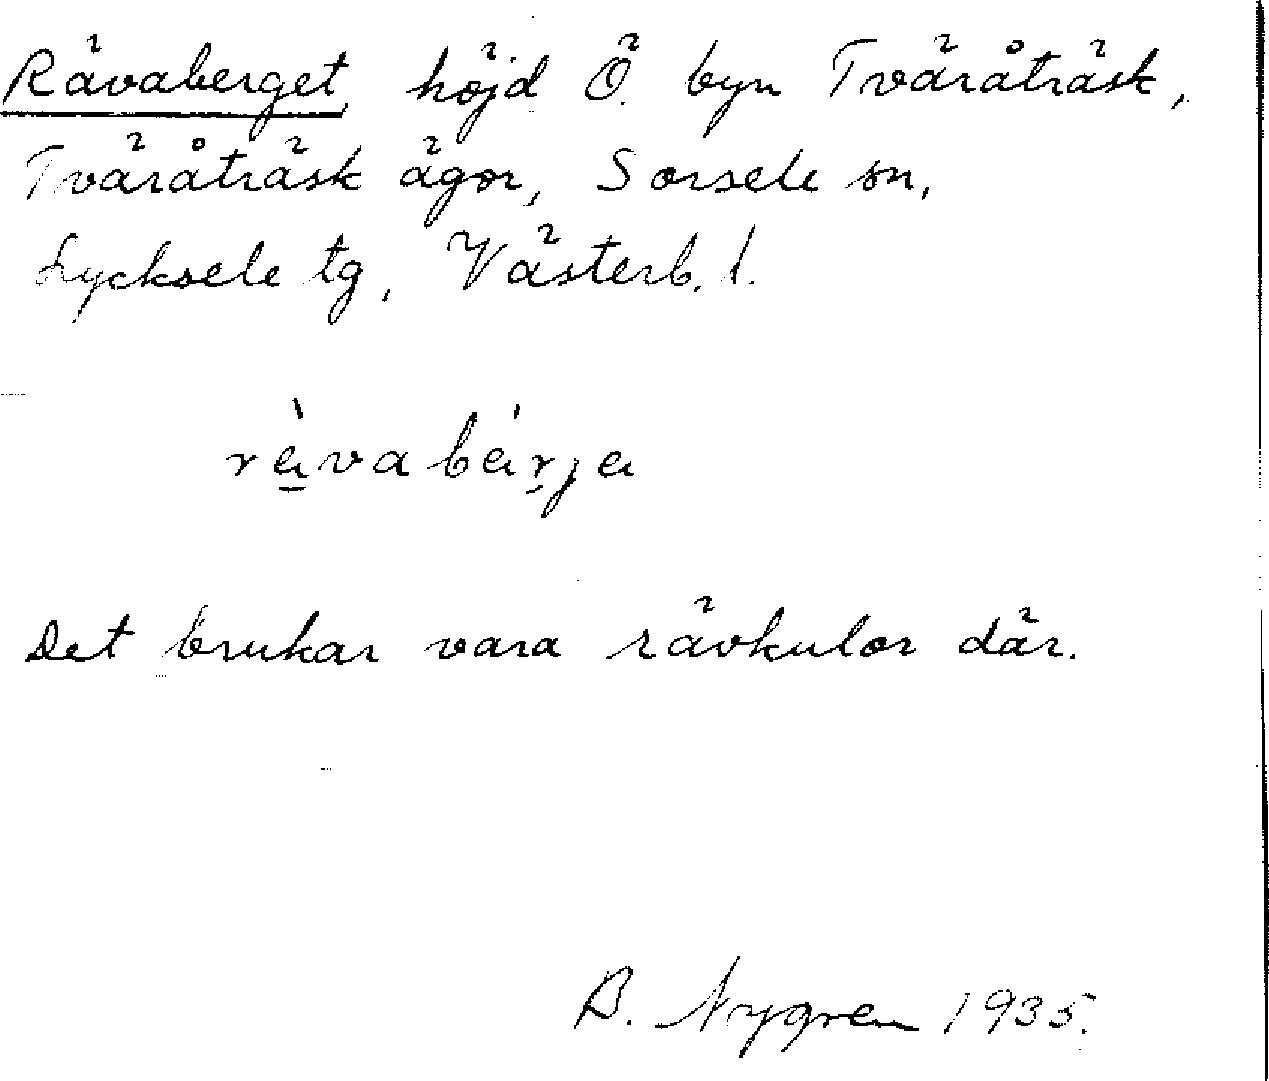 Rävaberget, höjd Ö. byn Tväråträsk,
Tväråträsk ägor, Sorsele sn,
Lycksele tg, Västerb. l.
rävabärja
Det brukar vara rävkulor där.
B. Nygren 1935.